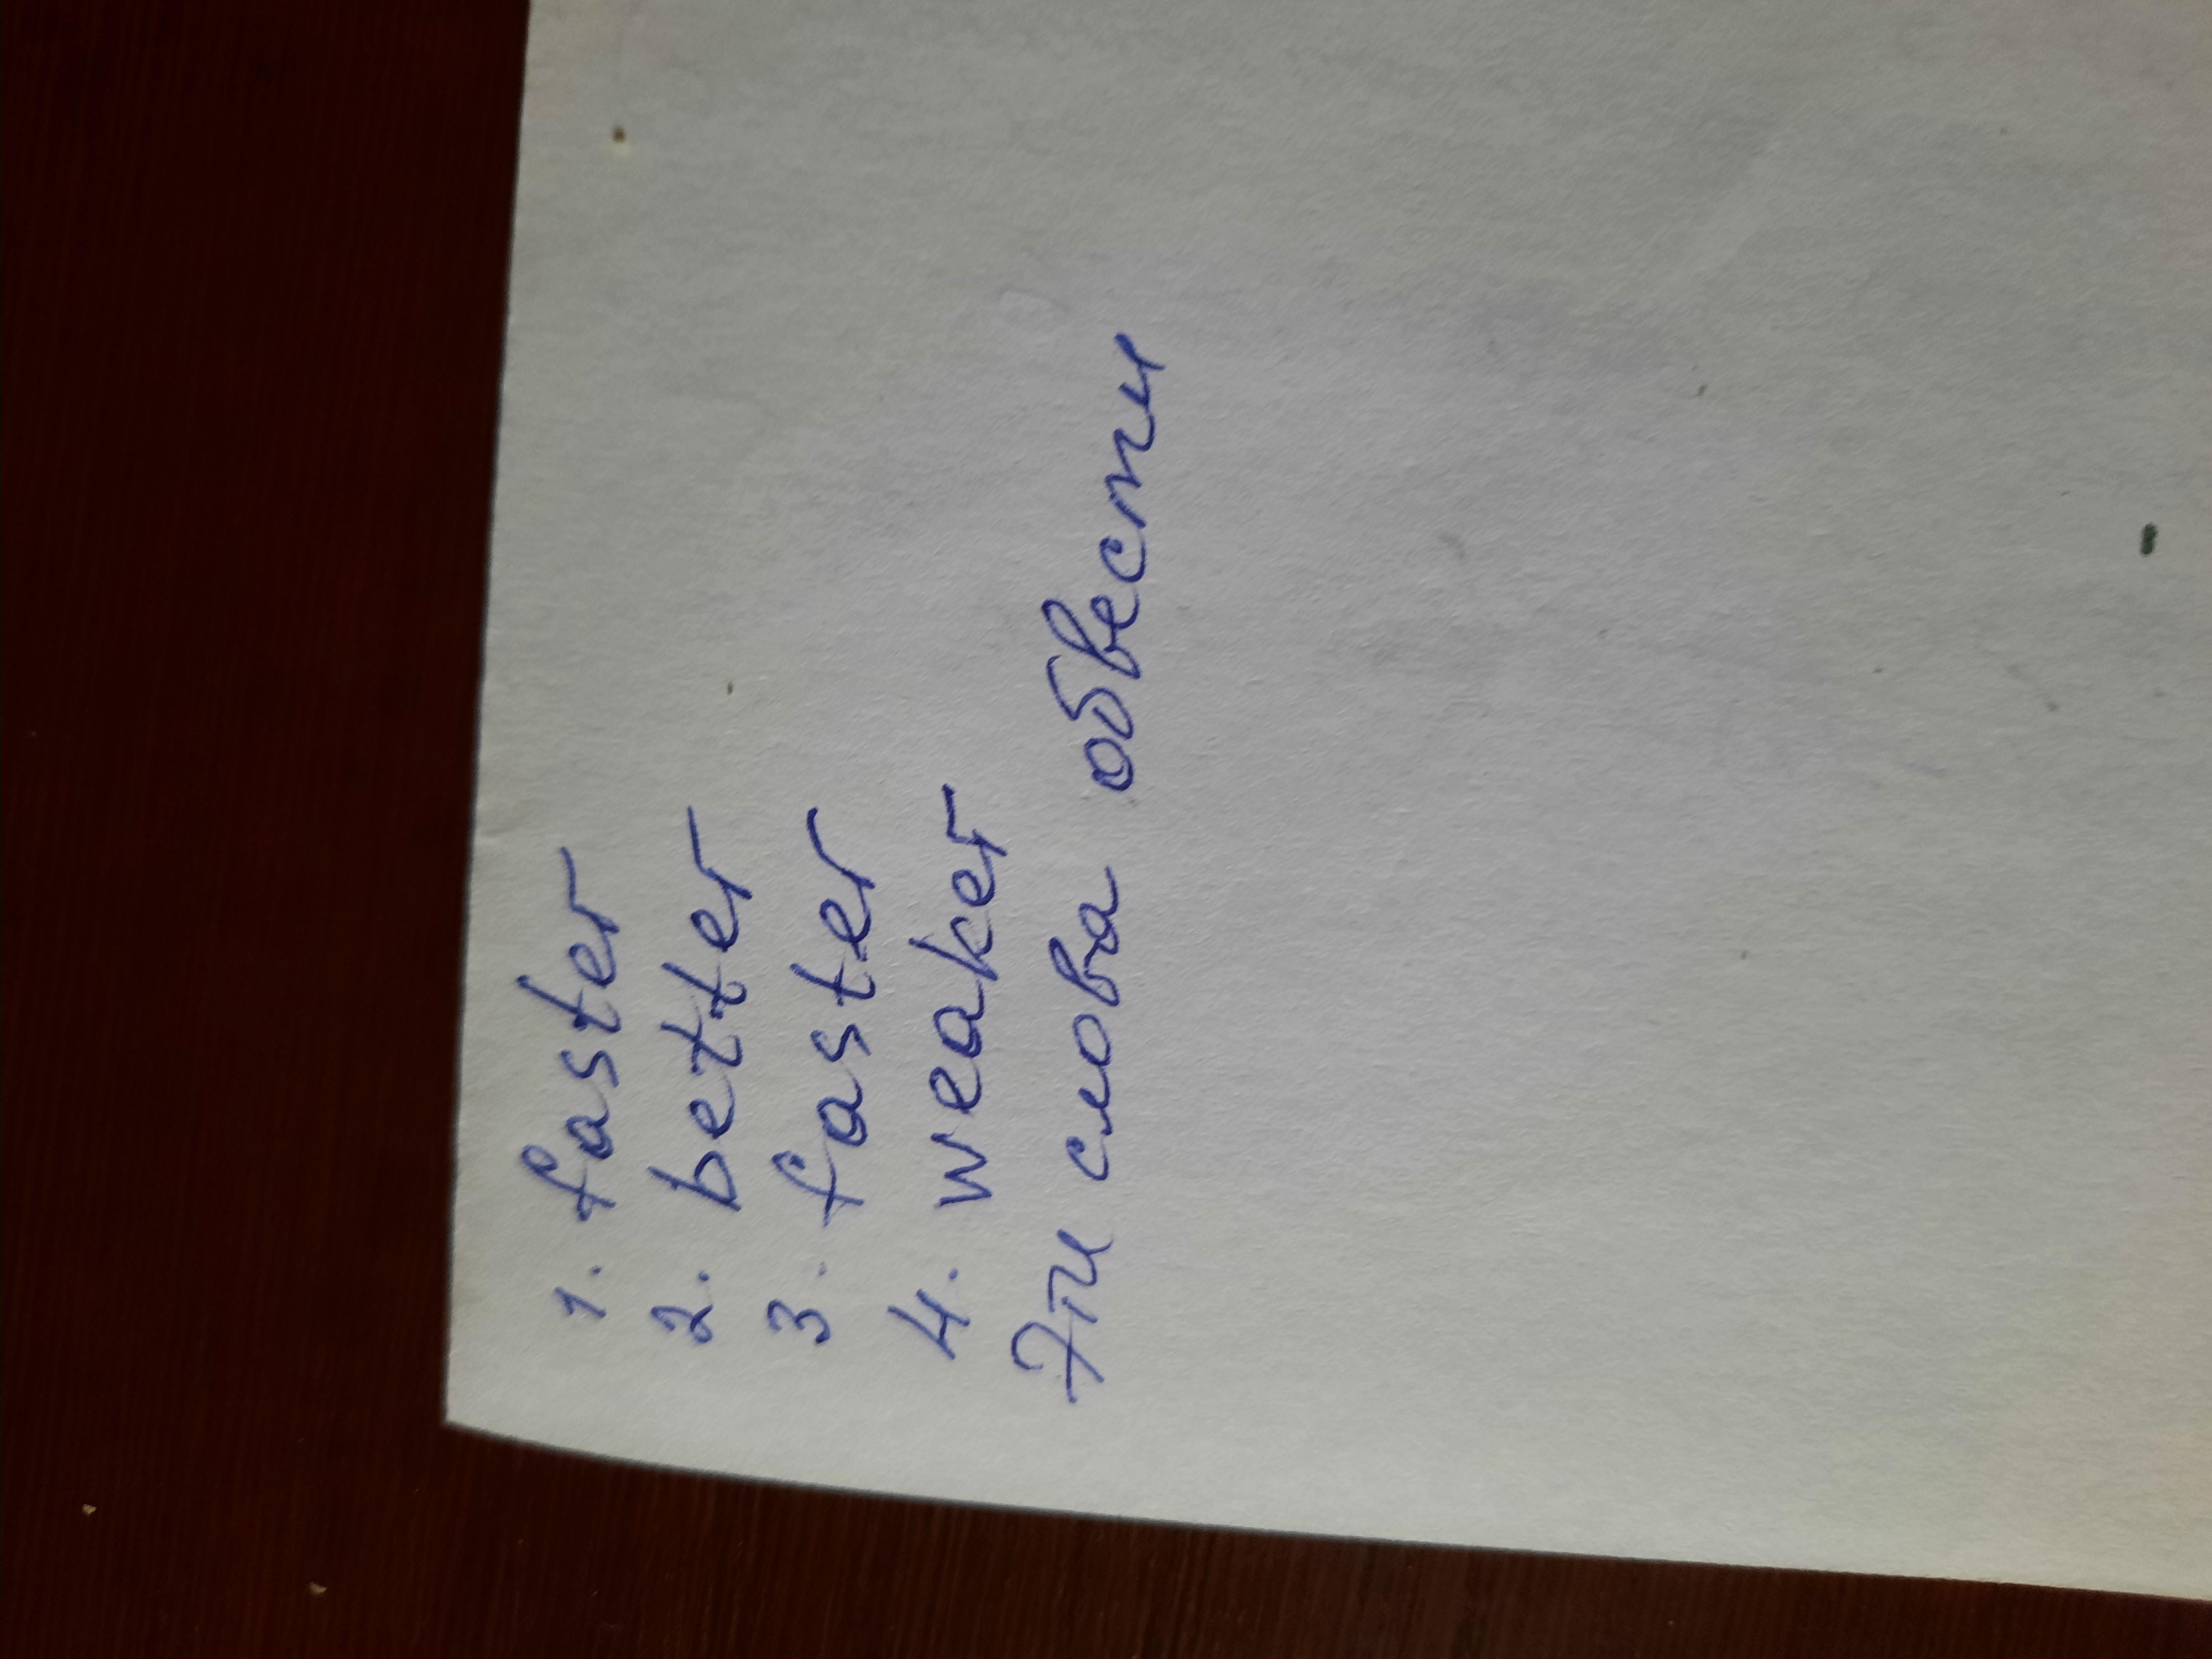 1. faster
2. better
3. faster
4. weaker
Эти слова обвести